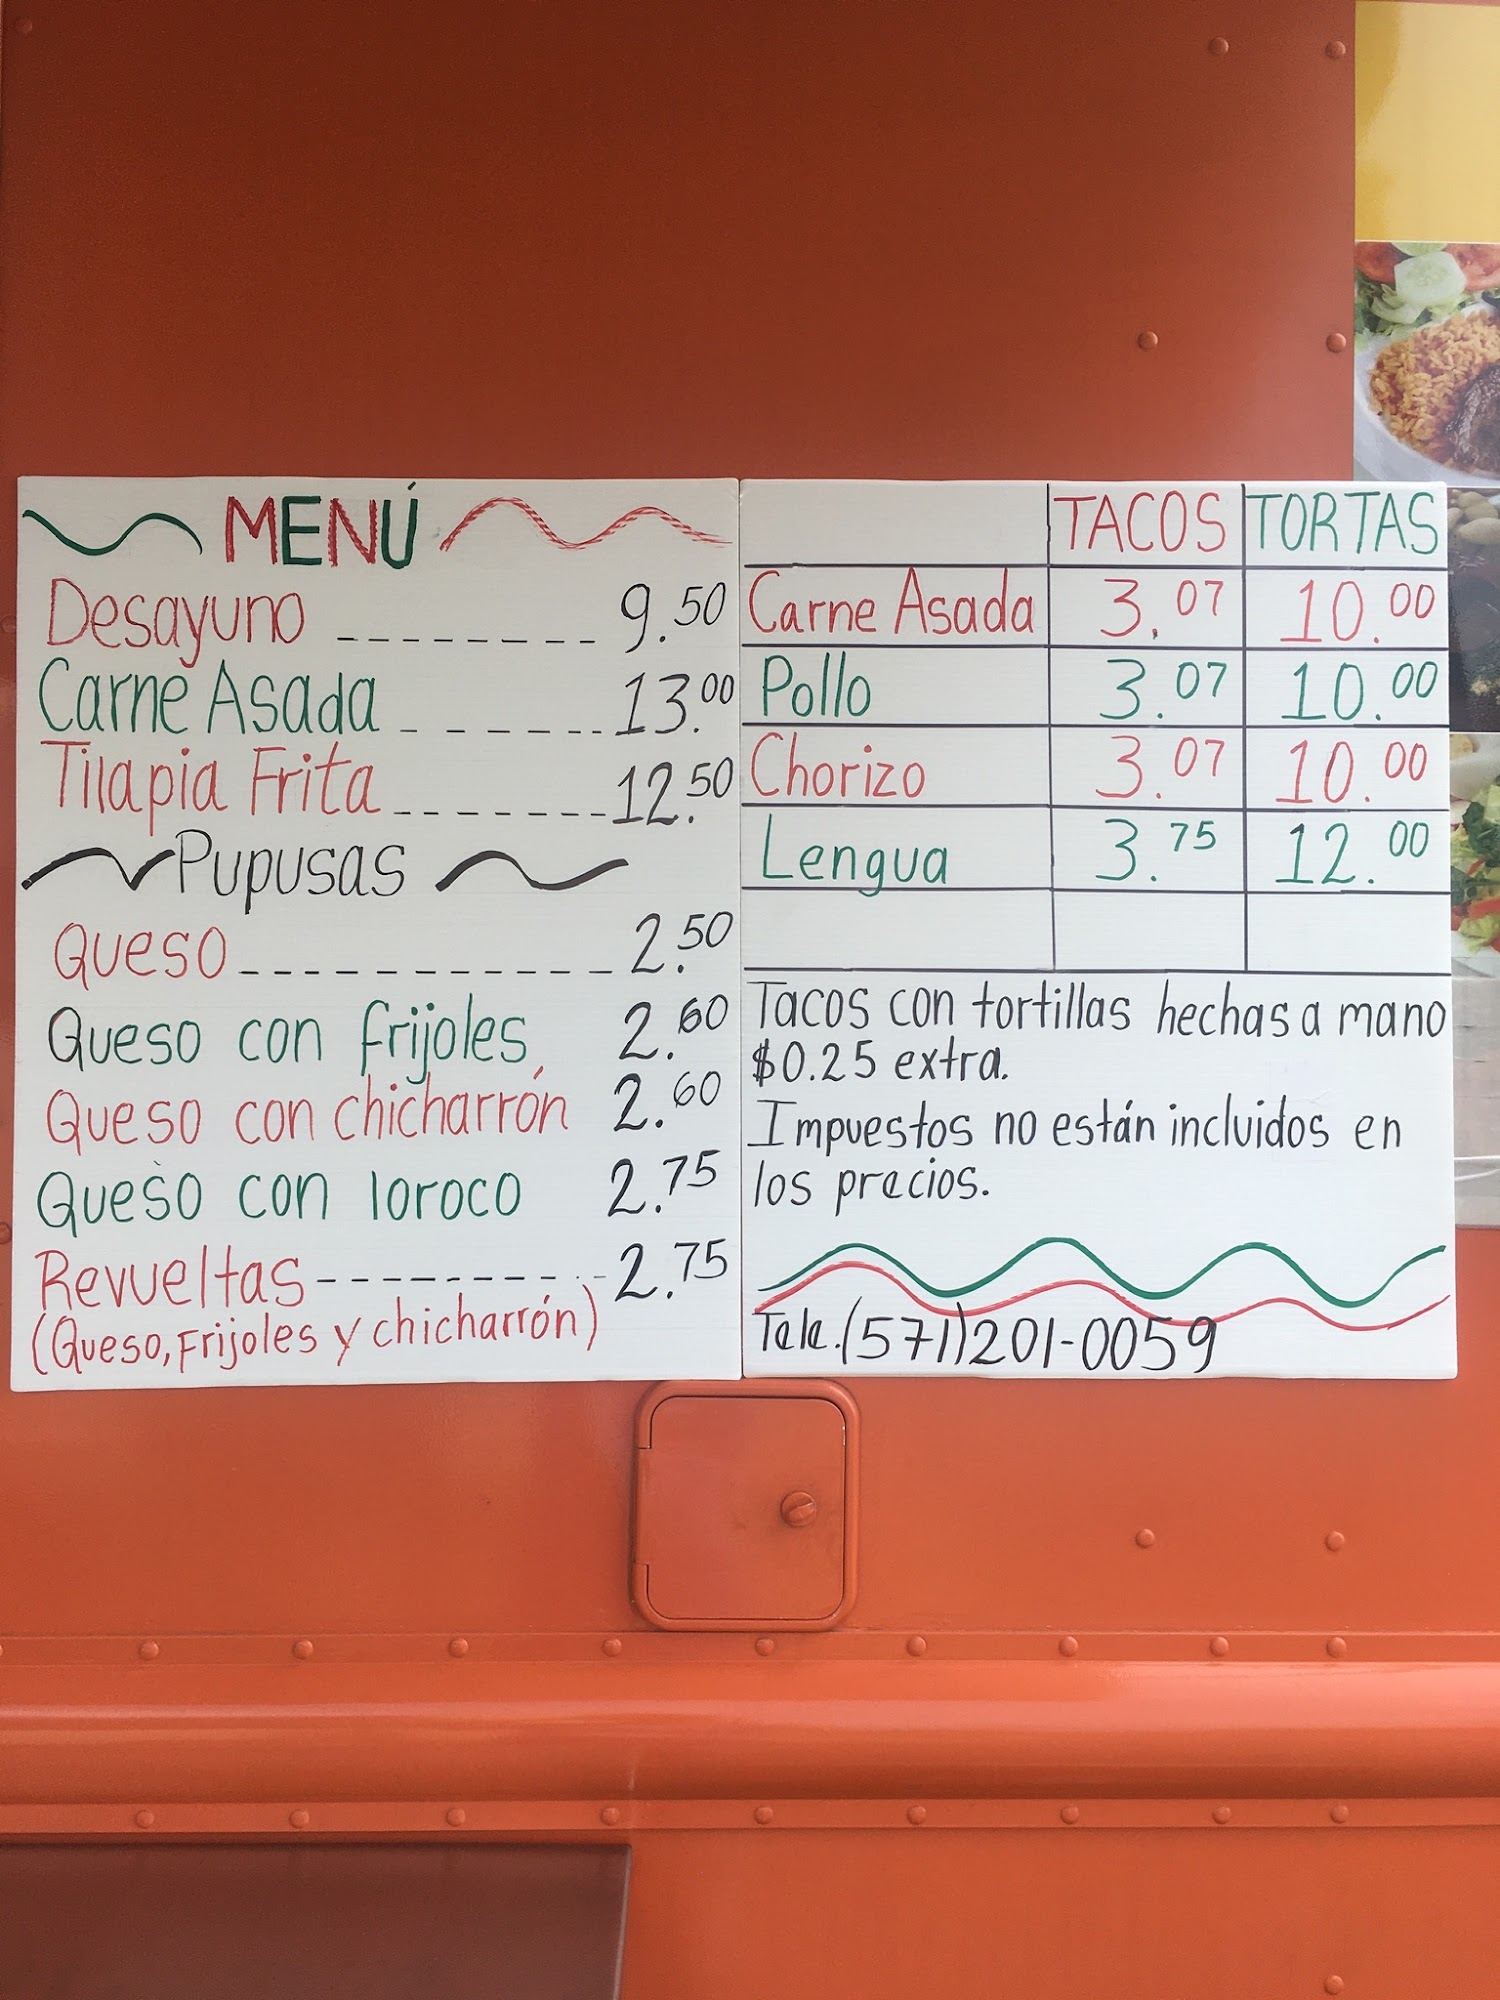 MENÚ
Desayuno -------- 9.50
Carne Asada ------ 13.00
Tilapia Frita ------- 12.50
Pupusas
Queso ------------ 2.50
Queso con frijoles 2.60
Queso con chicharrón 2.60
Queso con loroco 2.75
Revueltas --------- 2.75
(Queso, Frijoles y chicharrón)
TACOS TORTAS
Carne Asada 3.07 10.00
Pollo 3.07 10.00
Chorizo 3.07 10.00
Lengua 3.75 12.00
Tacos con tortillas hechas a mano
$0.25 extra.
Impuestos no están incluidos en
los precios.
Tele. (571)201-0059